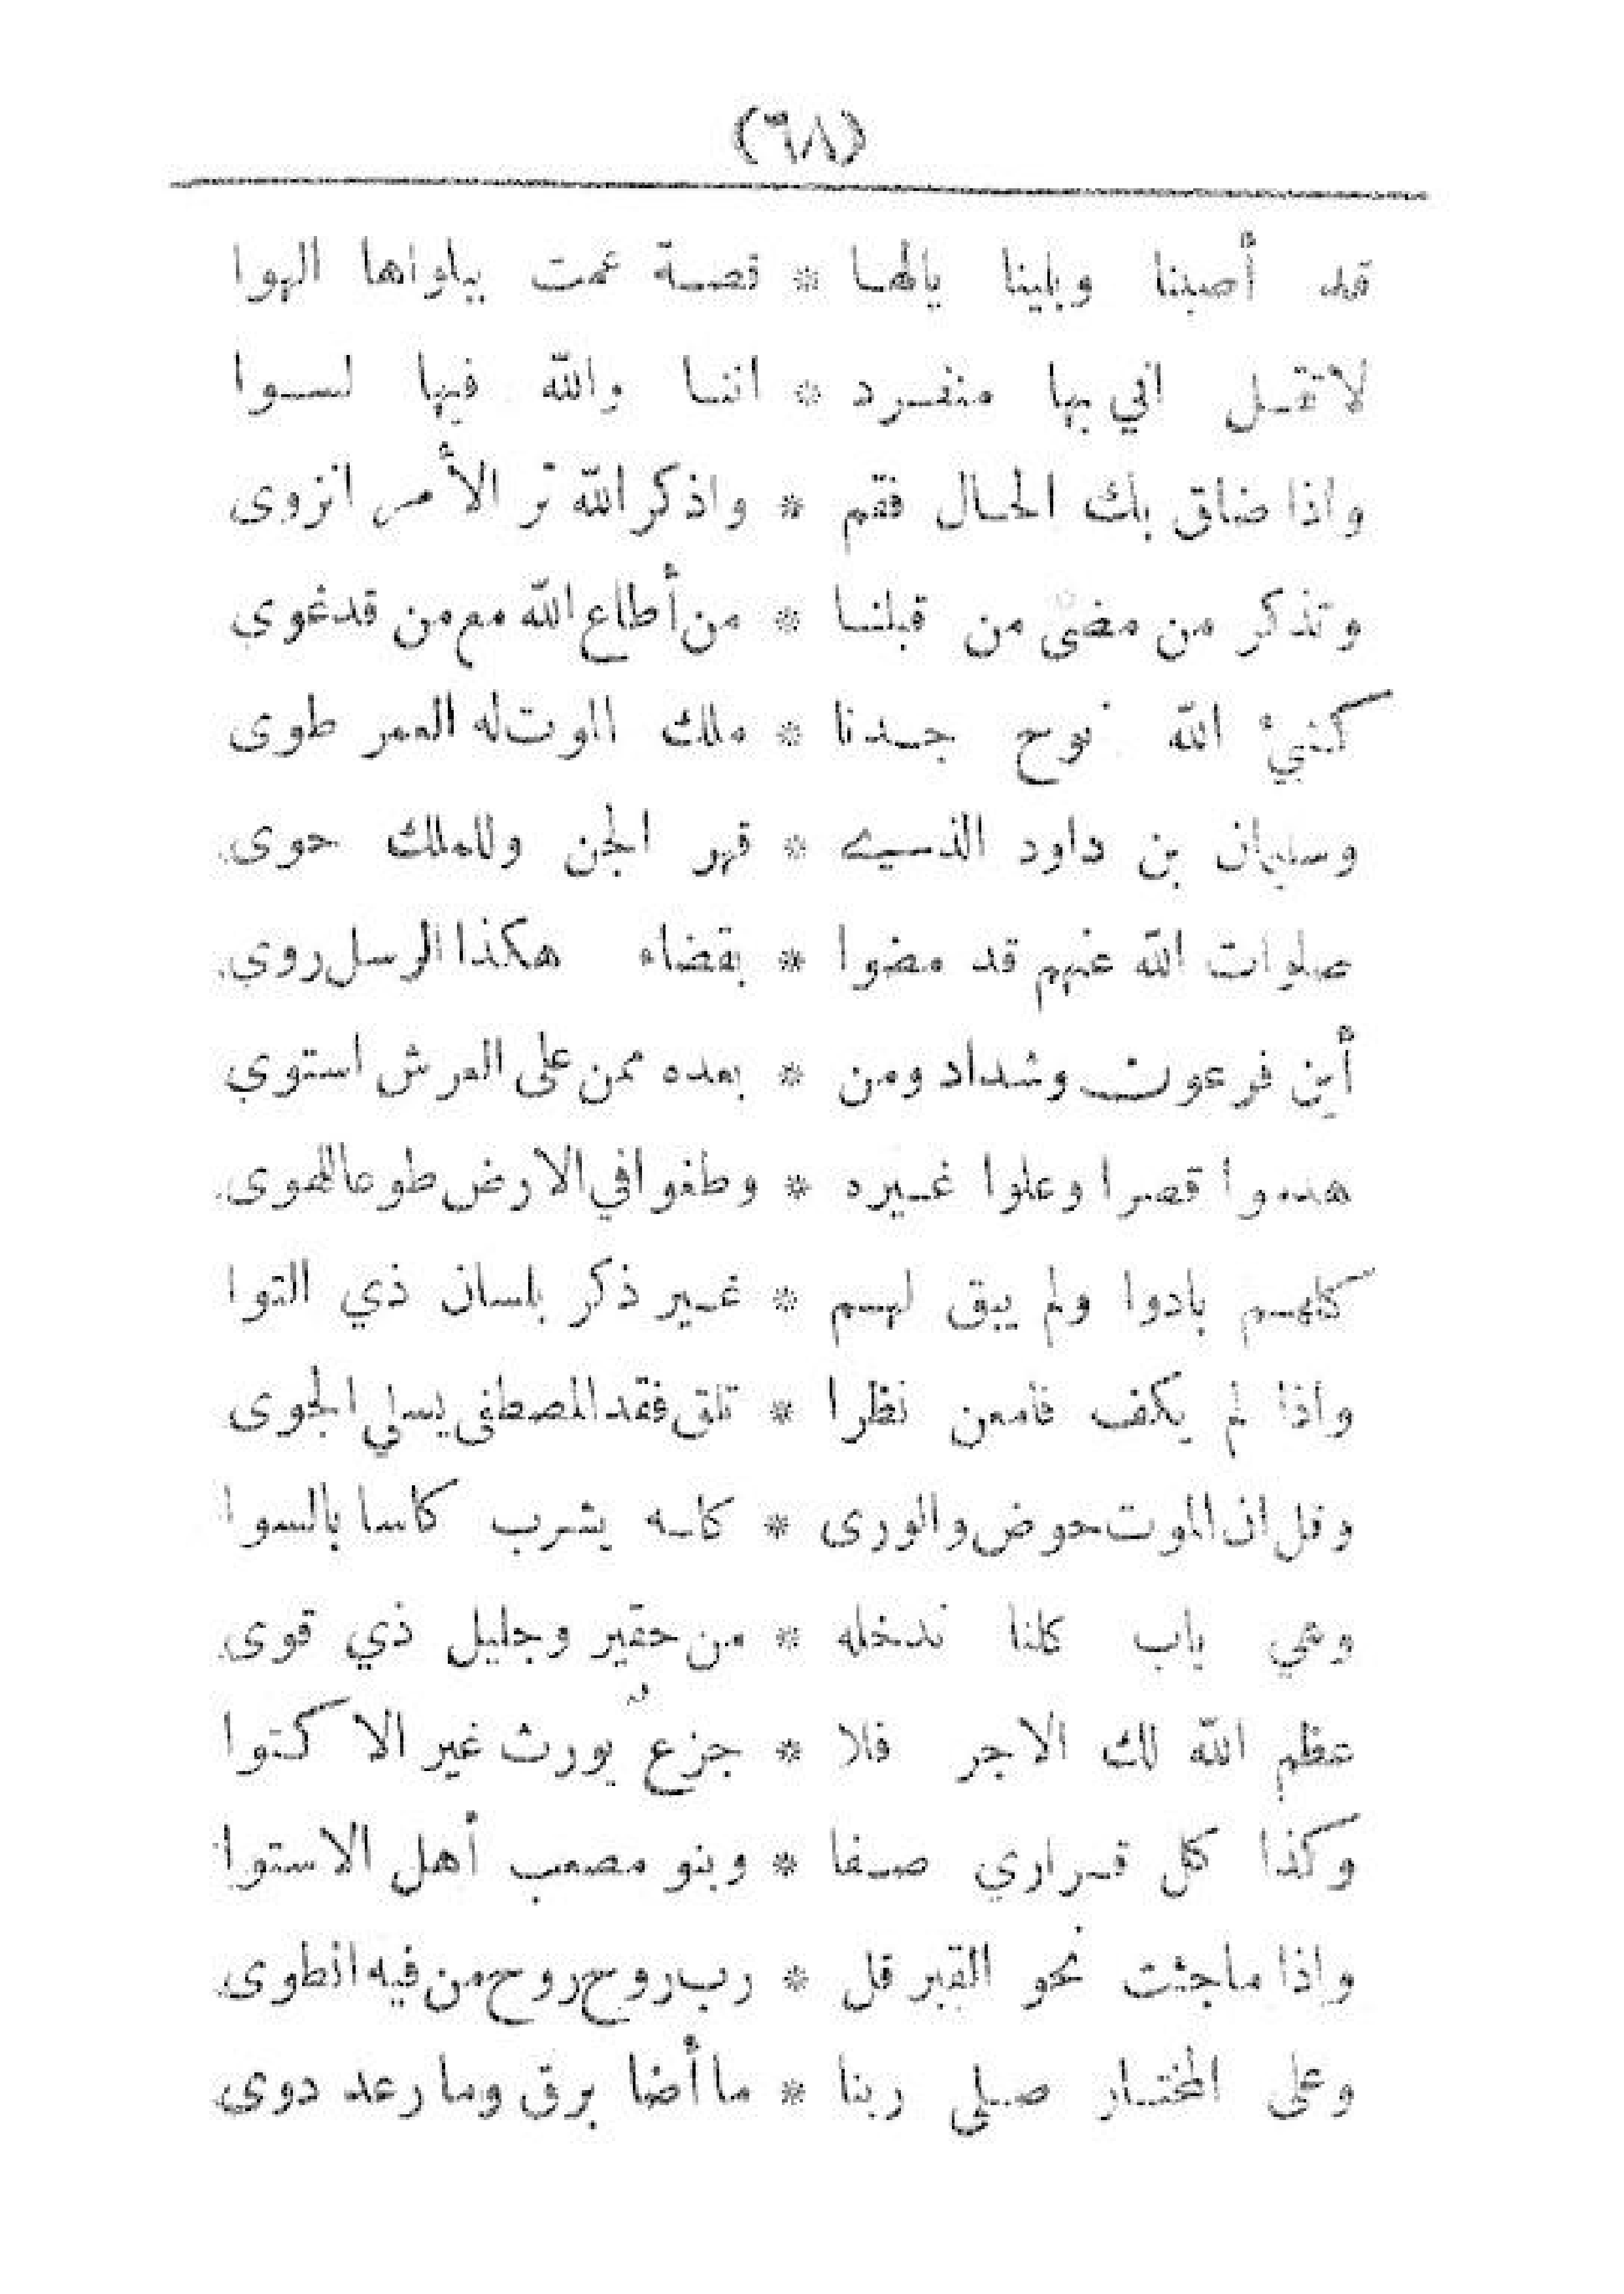 (٦٨)
قد أصبنا وبلينا يالها * قصة عمت ببلواها الهوا
لا تقل اني بها منفرد * اننا والله فيها لسوا
واذا ضاق بك الحال فقم * واذكر الله تر الأمر انزوى
وتذكر من مضى من قبلنا * من أطاع الله مع من قد غوي
كنبيّ الله نوح جدنا * ملك الموت له العمر طوى
وسليمان بن داود الذي * قهر الجن وللملك حوى
صلوات الله عنهم قد مضوا * بقضاء هكذا الرسل روي
أين فرعون وشداد ومن * بعده ممن على العرش استوي
هدموا قصرا وعلوا غيره * وطغوا في الارض طوعا للهوى
كلهم بادوا ولم يبق لهم * غير ذكر بلسان ذي التوا
واذا لم يكف فامعن نظرا * تلق فقد المصطفى يسلي الجوى
وقل ان الموت حوض والورى * كله يشرب كاسا بالسوا
وهي باب كلنا ندخله * من حقير وجليل ذي قوى
عظم الله لك الاجر فلا * جزع يورث غير الاكتوا
وكذا كل قراري صفا * وبنو مصعب أهل الاستوا
واذا ما جئت نحو القبر قل * رب روح روح من فيه انطوى
وعلى المختار صلى ربنا * ما أضا برق وما رعد دوي